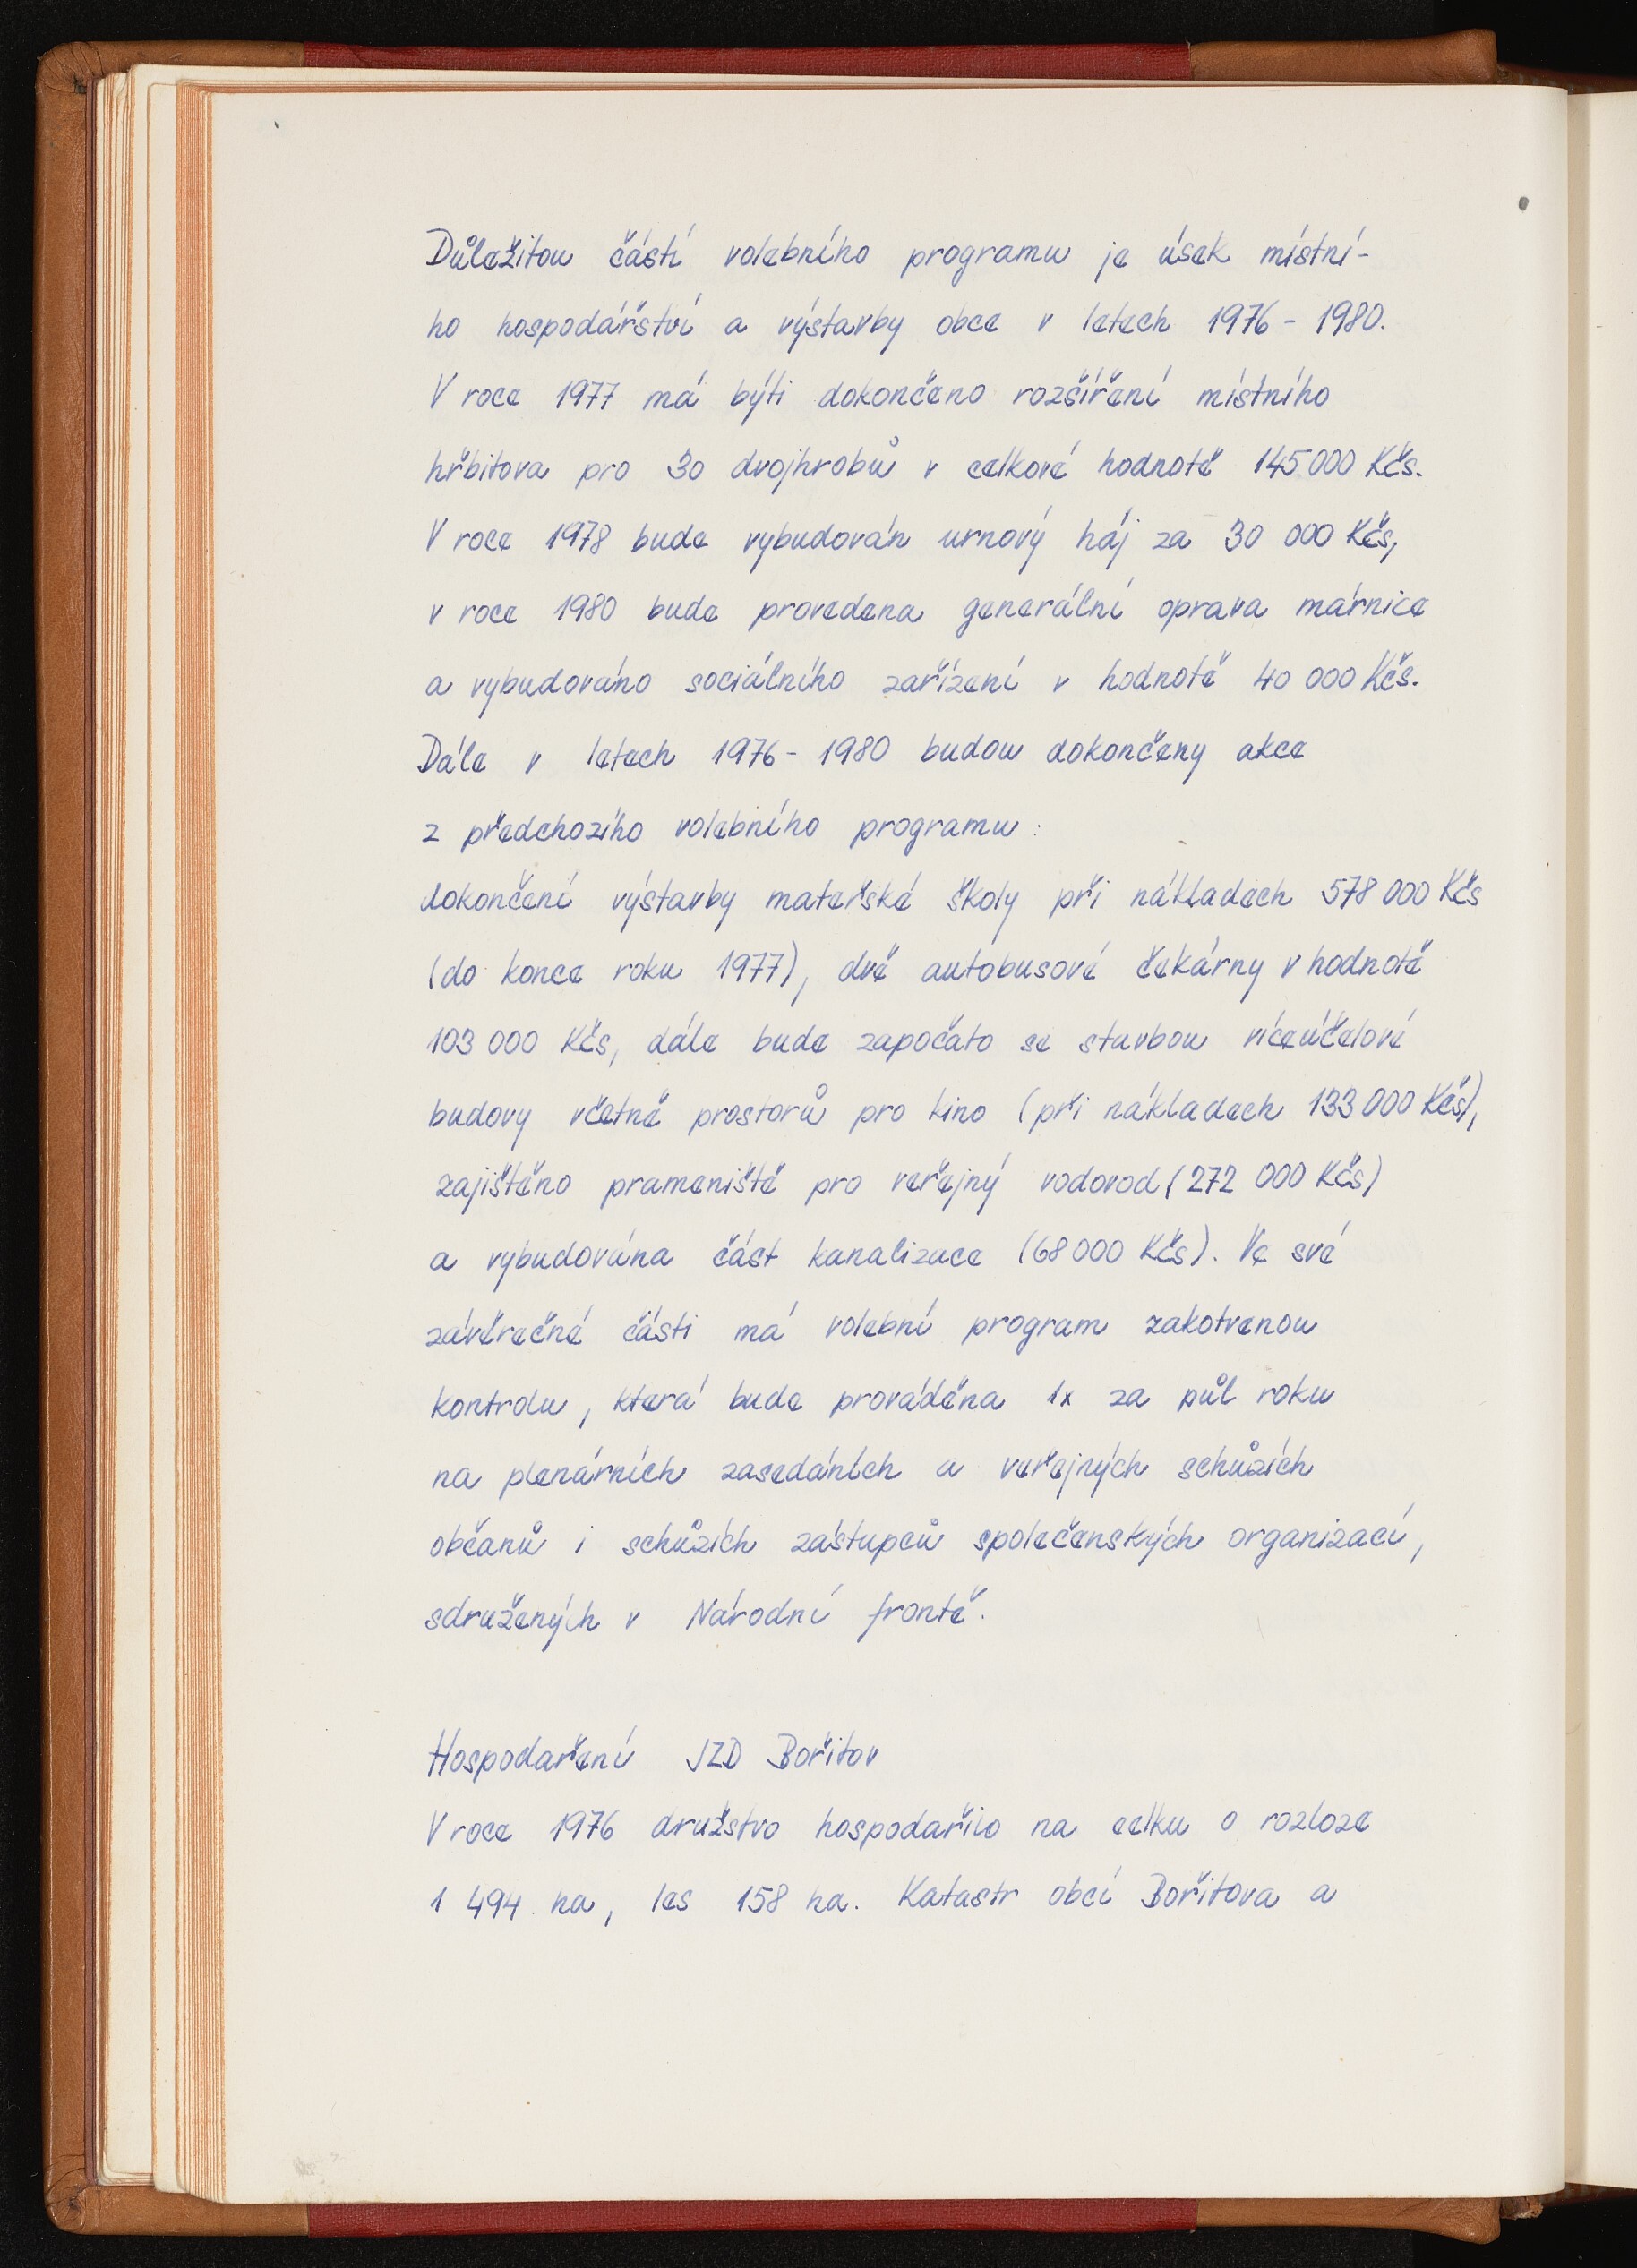 Důležitou částí volebního programu je úsek místní-
ho hospodářství a výstavby obce v letech 1976 - 1980.
V roce 1977 má býti dokončeno rozšíření místního
hřbitova pro 30 dvojhrobů v celkové hodnotě 145 000 Kčs.
V roce 1978 bude vybudován urnový háj za 30 000 Kčs,
v roce 1980 bude provedena generální oprava márnice
a vybudováno sociálního zařízení v hodnotě 40 000 Kčs.
Dále v letech 1976 - 1980 budou dokončeny akce
z předchozího volebního programu:
dokončení výstavby mateřské školy při nákladech 578 000 Kčs
(do konce roku 1977), dvě autobusové čekárny v hodnotě
103 000 Kčs, dále bude započato se stavbou víceúčelové
budovy včetně prostorů pro kino (při nákladech 133 000 Kčs),
zajištěno prameniště pro veřejný vodovod (272 000 Kčs)
a vybudována část kanalizace (68 000 Kčs). Ve své
závěrečné části má volební program zakotvenou
kontrolu, která bude prováděna 1x za půl roku
na plenárních zasedáních a veřejných schůzích
občanů i schůzích zástupců společenských organizací,
sdružených v Národní frontě.
Hospodaření JZD Bořitov
V roce 1976 družstvo hospodařilo na celku o rozloze
1 494 ha, les 158 ha. Katastr obcí Bořitova a